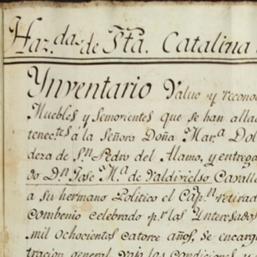 Haz.das de Sta. Catalina
Ynventario Valuo y recono
Muebles y Semorientes que se han alla
tenec.tes â la Señora Doña Mar.a Dol
deza de S.n Pedro del Alamo, y entrega
do D.n Jose M.a de Valdivielso Cavalle
a su hermano Politico el Cap.n retirad
Combenio celebrado p.r los Interesados
mil ochocientos catorce años, se encarg
tracion general vajo las condiciones y